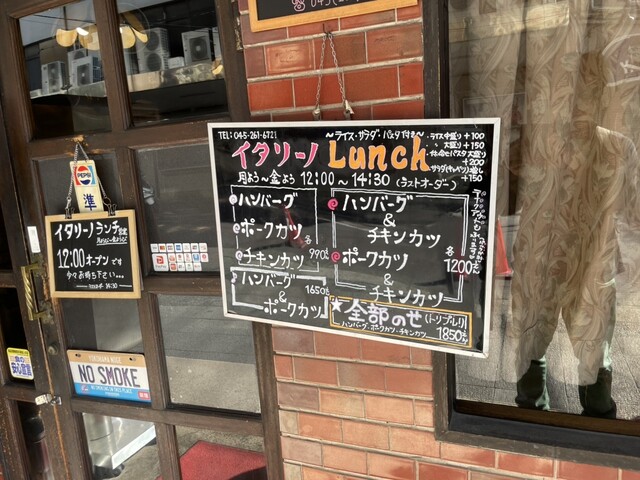 TEL:045-261-6721
~ライス・サラダ・パスタ付き~
ライス中盛り +100
〃 大盛り +150
たらこパスタ大盛り
+200
サラダ(キャベツ)増し
+150
イタリーノ Lunch
月よう~金よう 12:00~14:30 (ラストオーダー)
ハンバーグ
ポークカツ
チキンカツ
各990えん
ハンバーグ
&
ポークカツ
1650えん
ハンバーグ
&
チキンカツ
ポークカツ
&
チキンカツ
各1200えん
★全部のせ (トリプルリ)
ハンバーグ・ポークカツ・チキンカツ 1850えん
PEPSI
準
イタリーノランチ
12:00オープンです
少々お待ち下さい…
NO SMOKE